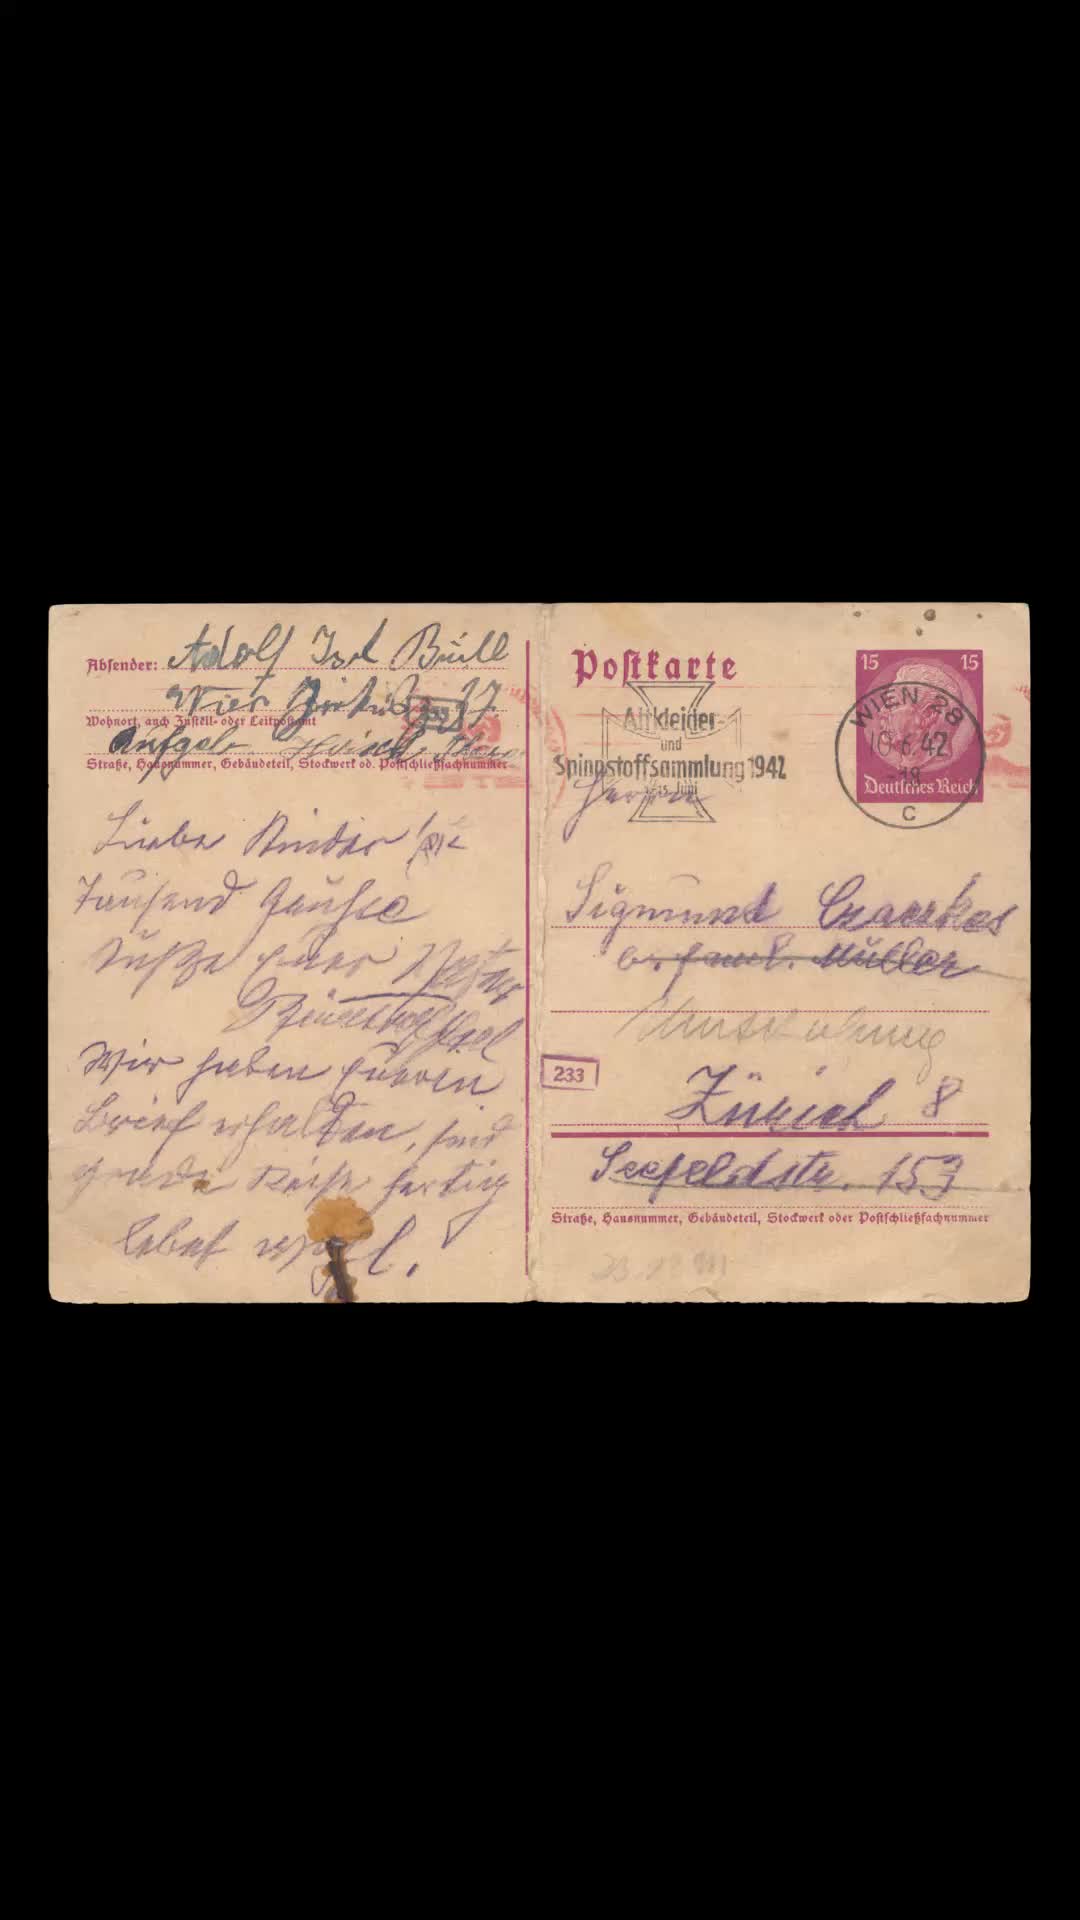 Absender: Adolf Isrl Büll
Wien
Wohnort, auch Zustell- oder Leitpostamt
Aufgeb. Hirsch
Straße, Hausnummer, Gebäudeteil, Stockwerk od. Postschließfachnummer
Liebe Kinder
Tausend Grüße
Küße Euer Vater
Wir haben Eueren
Brief erhalten, sind
grade Reise fertig
lebet wohl.
Postkarte
Altkleider-
und
Spinnstoffsammlung 1942
15. Juni
15 15
Deutsches Reich
WIEN 28
10.6.42
-18
C
Herrn
Sigmund Czaczkes
b. Müller
233
Zürich 8
Seefeldstr. 153
Straße, Hausnummer, Gebäudeteil, Stockwerk oder Postschließfachnummer